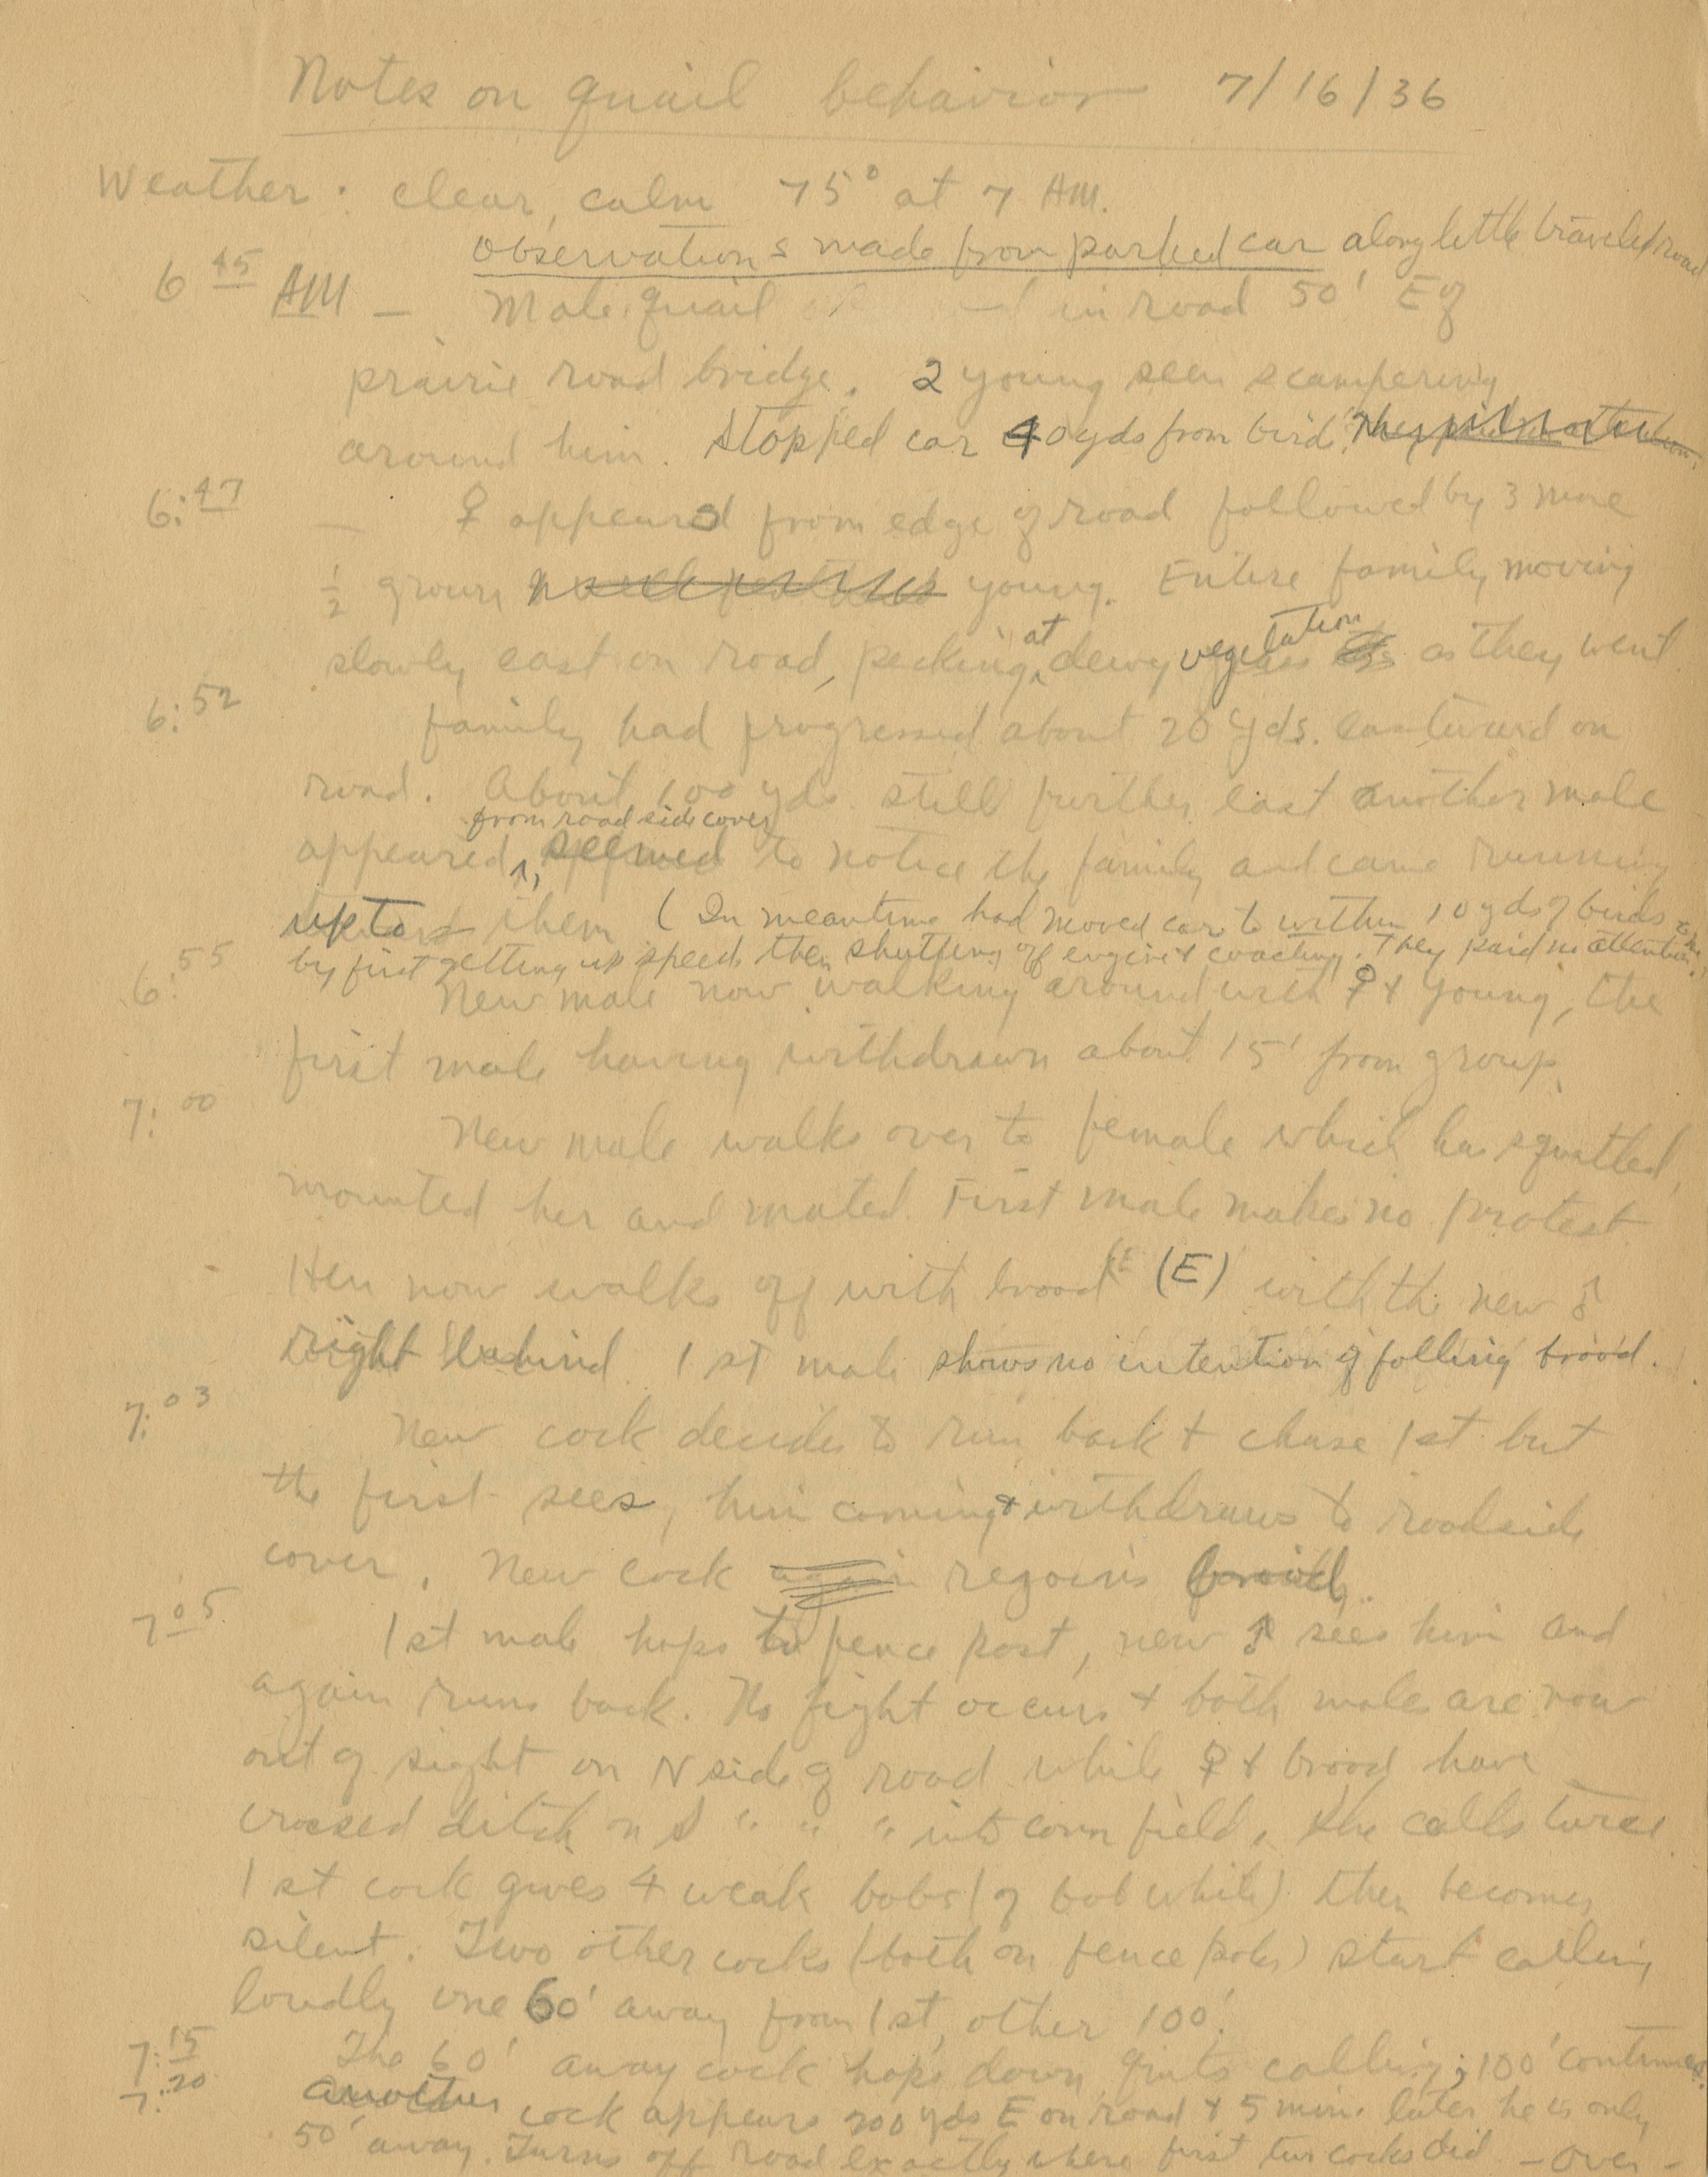 Notes on quail behavior 7/16/36
Weather: clear, calm 75° at 7 AM.
Observations made from parked car along little traveled road
6 45 AM — Male quail in road 50' E of
prairie road bridge. 2 young seen scampering
around him. Stopped car 40 yds from bird. They paid no attention.
6:47 — ♀ appeared from edge of road followed by 3 more
½ grown young. Entire family moving
slowly east on road, pecking at dewy vegetation as they went
6:52 family had progressed about 20 yds. eastward on
road. About 100 yds still further east another male
from road side cover
appeared, seemed to notice the family and came running
up to them (In meantime had moved car to within 10 yds of birds
by first getting up speed then shutting off engine & coasting. They paid no attention.
6:55 New male now walking around with ♀ & young, the
first male having withdrawn about 15' from group.
7:00 New male walks over to female which has squatted,
mounted her and mated. First male makes no protest
Hen now walks off with brood (E) with the new ♂
right behind. 1st male shows no intention of folling brood.
7:03 New cock decides to run back & chase 1st but
the first sees, him coming & withdraws to roadside
cover. New cock again regoins
7 05 1st male hops to fence post, new ♂ sees him and
again runs back. No fight occurs & both males are now
out of sight on N side of road while ♀ & brood have
crossed ditch on S " " " into corn field. She calls twice
1st cock gives 4 weak bobs (of bob white) then becomes
silent. Two other cocks (both on fence poles) start calling
loudly one 60' away from 1st, other 100'.
7:15 The 60' away cock hops down quits calling; 100' continues.
7:20 another cock appears 200 yds E on road & 5 min. later he is only
50' away. Turns off road exactly where first two cocks did — over —